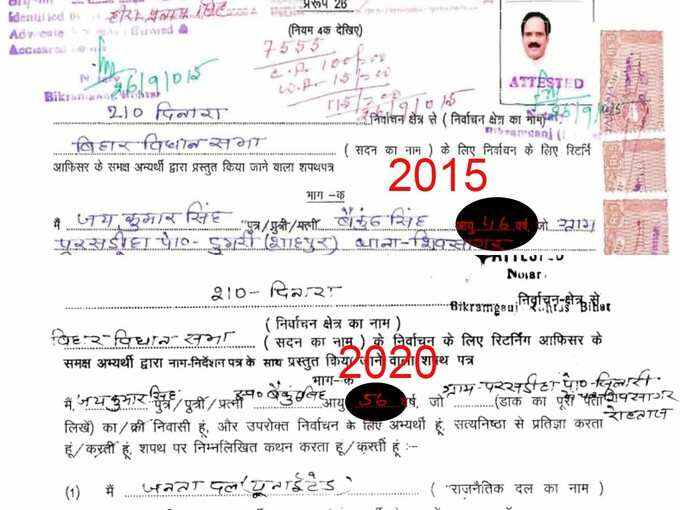 प्ररूप 26
(नियम 4क देखिए)
7555
ATTESTED
26/9/015
210 दिनारा
निर्वाचन क्षेत्र से ( निर्वाचन क्षेत्र का नाम)
बिहार विधान सभा ( सदन का नाम ) के लिए निर्वाचन के लिए रिटर्निंग
आफिसर के समक्ष अभ्यर्थी द्वारा प्रस्तुत किया जाने वाला शपथपत्र
2015
भाग –क
मैं जय कुमार सिंह पुत्र/पुत्री/पत्नी बैकुंठ सिंह आयु 46 वर्ष, जो ग्राम
परसडीहा पो0- डुमरी (शाहपुर) थाना-शिवसागर
210- दिनारा निर्वाचन-क्षेत्र से
Bikramganj Rohtas Bihar
( निर्वाचन क्षेत्र का नाम )
बिहार विधान सभा ( सदन का नाम ) के निर्वाचन के लिए रिटर्निंग आफिसर के
समक्ष अभ्यर्थी द्वारा नाम-निर्देशन पत्र के साथ प्रस्तुत किया जाने वाला शपथ पत्र
2020
भाग- क
मैं, जय कुमार सिंह पुत्र/पुत्री/पत्नी स्व0 बैकुंठ सिंह आयु 56 वर्ष, जो ग्राम-परसडीहा पो0- (डाक का पूरा पता शिवसागर
रोहतास
लिखें) का/की निवासी हूं, और उपरोक्त निर्वाचन के लिए अभ्यर्थी हूं, सत्यनिष्ठा से प्रतिज्ञा करता
हूं/करती हूं, शपथ पर निम्नलिखित कथन करता हू/करती हूं :–
(1) मैं जनता दल (यूनाईटेड) ( "राजनैतिक दल का नाम )